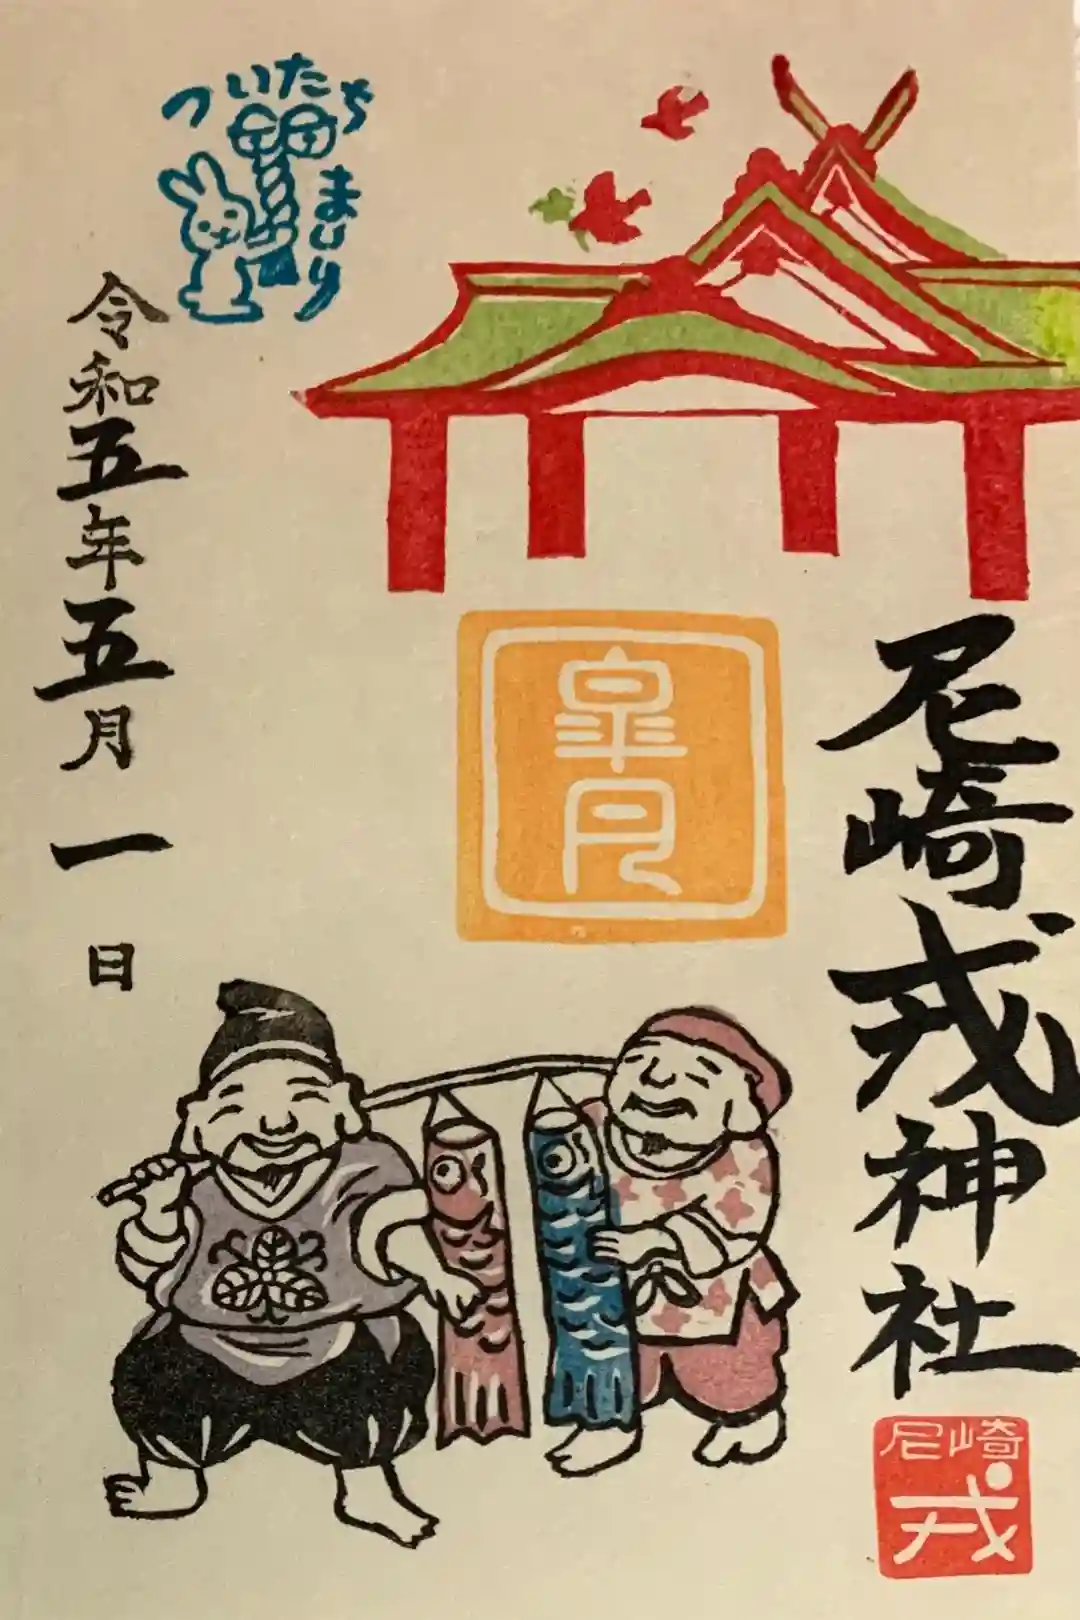 ついたち
まいり
尼崎戎神社
尼崎
戎
皐月
令和五年五月一日